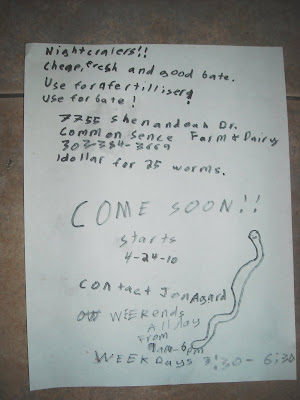 Nightcralers!!
Cheap, fresh and good bate.
Use for a fertilliser!
Use for bate!
7755 Shenandoah Dr.
Common Sence Farm & Dairy
303-384-3669
1 dollar for 25 worms.
COME SOON!!
starts
4-24-10
Contact Jon Agard
WEEKends
All day
From
9am-6pm
WEEKDays 3:30-6:30